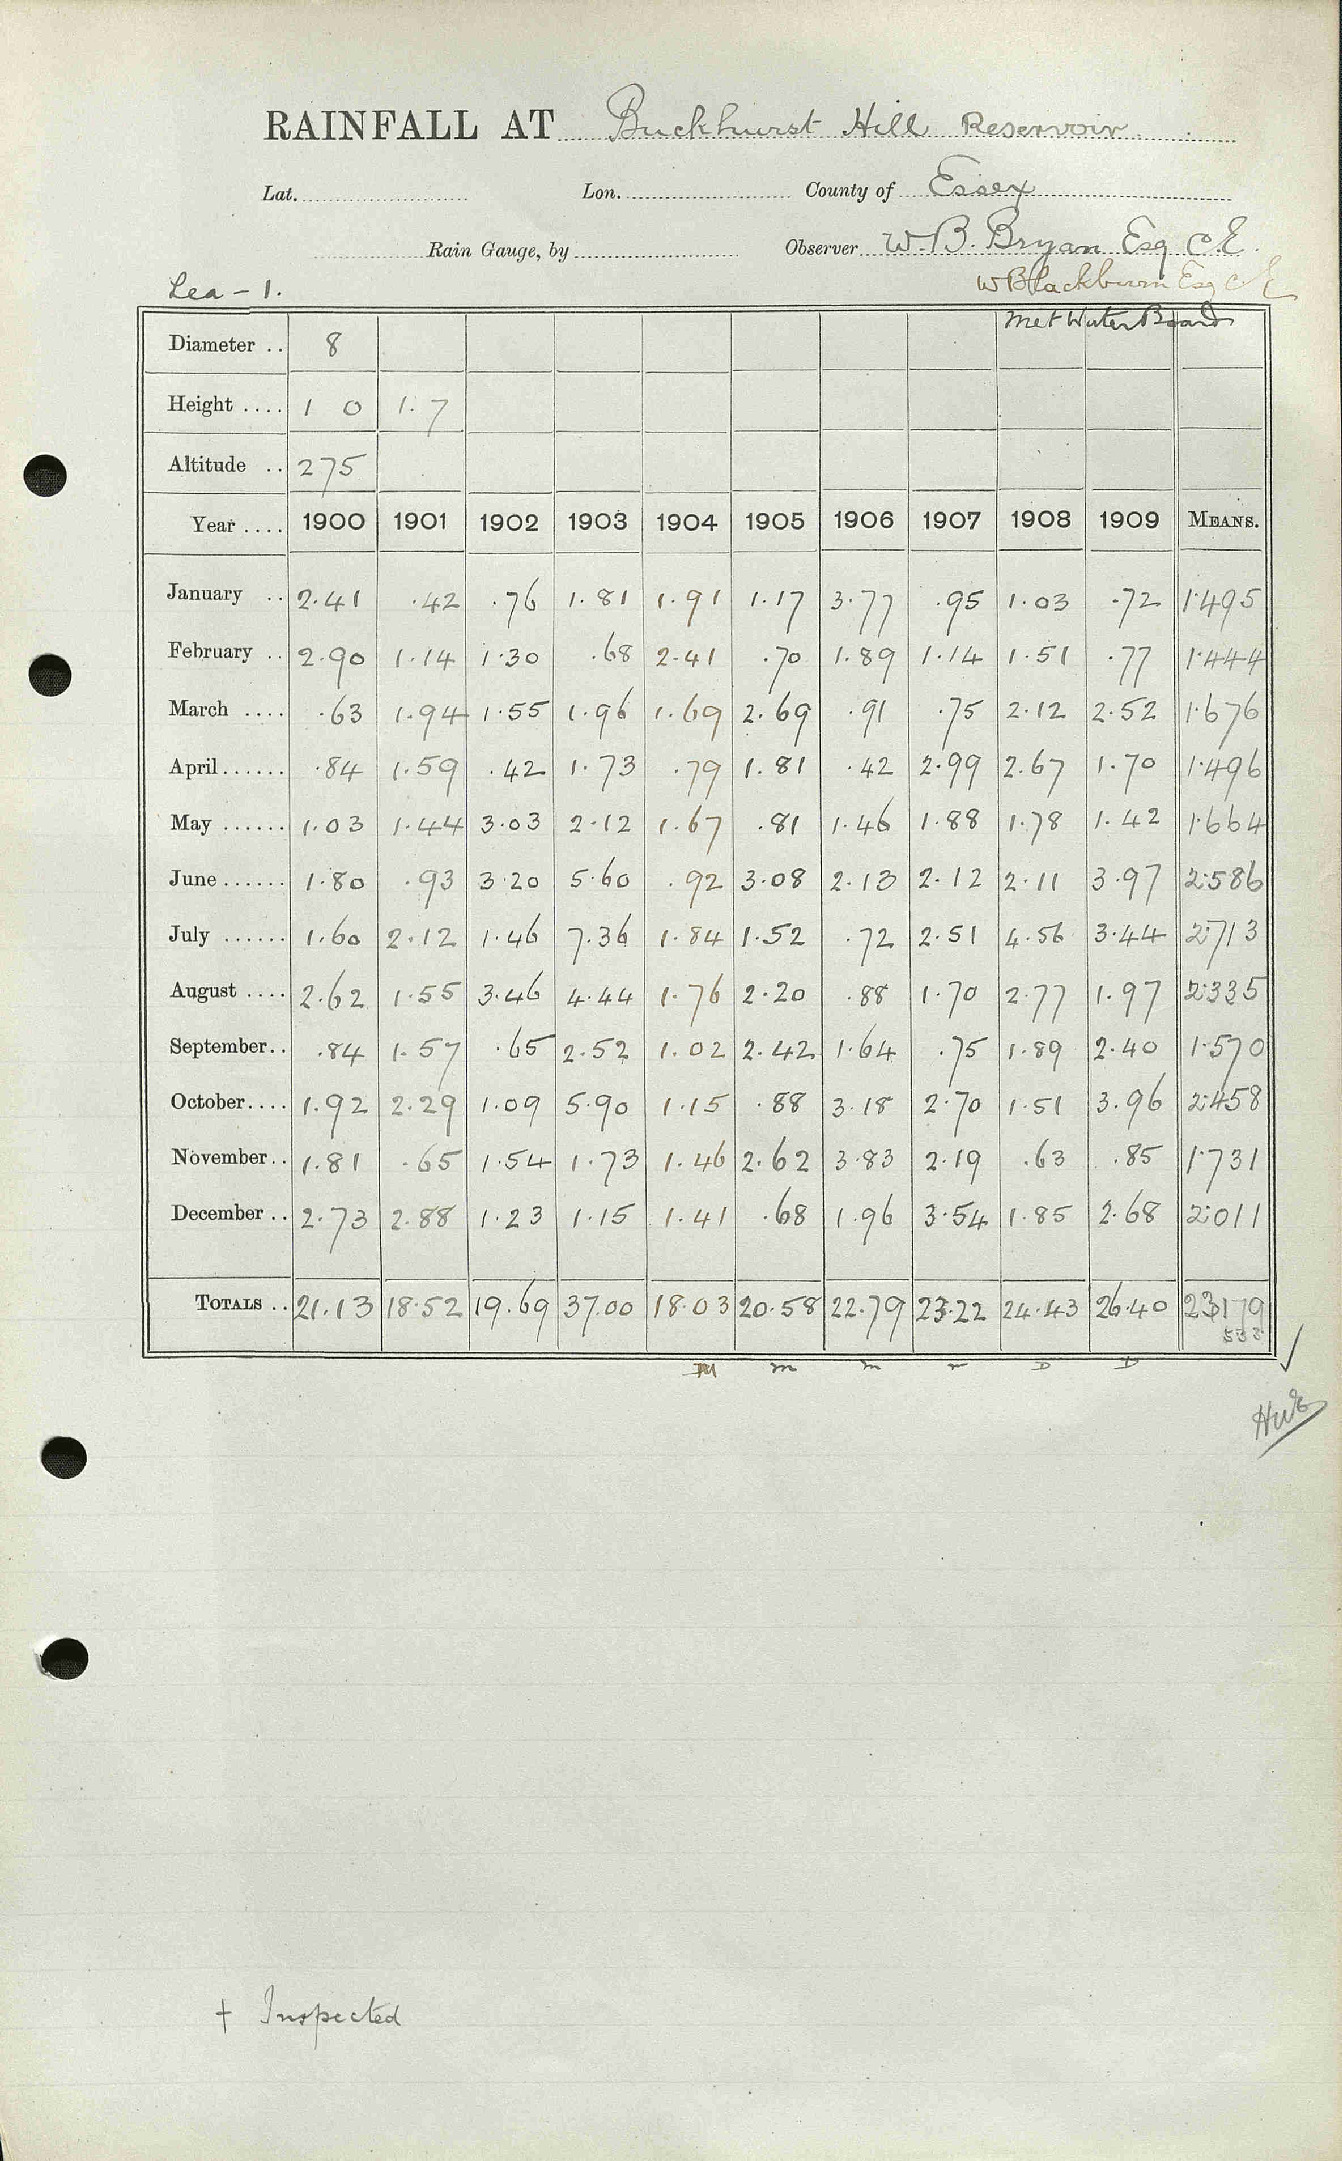 RAINFALL AT Buckhurst Hill Reservoir
Lat. Lon. County of Essex
Rain Gauge, by Observer W. B. Bryan Esq C.E.
Lea - 1. W Blackburn Esq C E
Met Water Board
Diameter .. 8
Height .... 1 0 1.7
Altitude .. 275
Year .... 1900 1901 1902 1903 1904 1905 1906 1907 1908 1909 MEANS.
January .. 2.41 .42 .76 1.81 1.91 1.17 3.77 .95 1.03 .72 1.495
February .. 2.90 1.14 1.30 .68 2.41 .70 1.89 1.14 1.51 .77 1.444
March .... .63 1.94 1.55 1.96 1.69 2.69 .91 .75 2.12 2.52 1.676
April...... .84 1.59 .42 1.73 .79 1.81 .42 2.99 2.67 1.70 1.496
May ...... 1.03 1.44 3.03 2.12 1.67 .81 1.46 1.88 1.78 1.42 1.664
June...... 1.80 .93 3.20 5.60 .92 3.08 2.13 2.12 2.11 3.97 2.586
July ...... 1.60 2.12 1.46 7.36 1.84 1.52 .72 2.51 4.56 3.44 2.713
August .... 2.62 1.55 3.46 4.44 1.76 2.20 .88 1.70 2.77 1.97 2.335
September.. .84 1.57 .65 2.52 1.02 2.42 1.64 .75 1.89 2.40 1.570
October.... 1.92 2.29 1.09 5.90 1.15 .88 3.18 2.70 1.51 3.96 2.458
November.. 1.81 .65 1.54 1.73 1.46 2.62 3.83 2.19 .63 .85 1.731
December .. 2.73 2.88 1.23 1.15 1.41 .68 1.96 3.54 1.85 2.68 2.011
TOTALS .. 21.13 18.52 19.69 37.00 18.03 20.58 22.79 23.22 24.43 26.40 23.179
M m m r D D
† Inspected